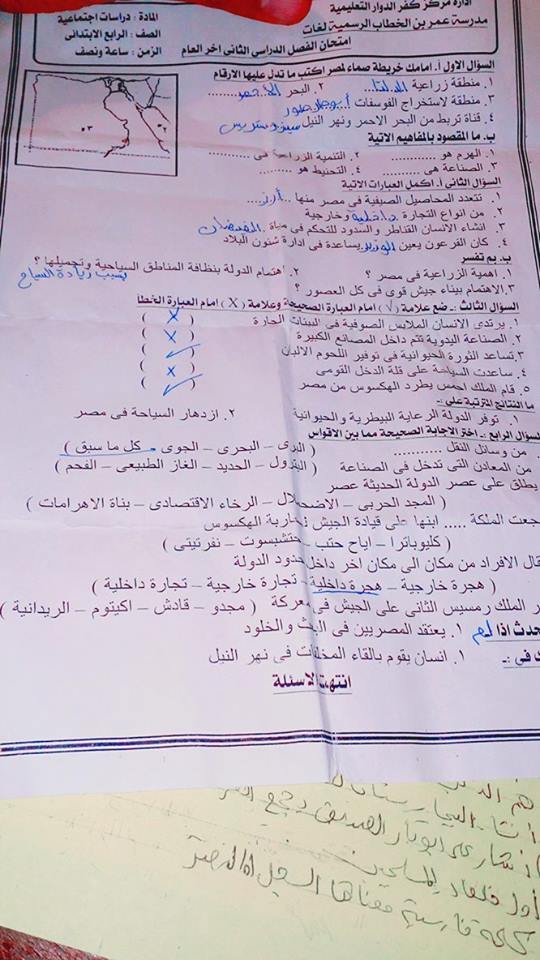 ادارة مركز كفر الدوار التعليمية
مدرسة عمر بن الخطاب الرسمية لغات
امتحان الفصل الدراسى الثانى اخر العام
المادة : دراسات اجتماعية
الصف : الرابع الابتدائى
الزمن : ساعة ونصف
السؤال الاول أ. امامك خريطة صماء لمصر اكتب ما تدل عليها الارقام
١. منطقة زراعية الدلتا... ٢. البحر الأحمر........
٣. منطقة لاستخراج الفوسفات أبو طرطور
٤. قناة تربط من البحر الاحمر ونهر النيل سيزوستريس
ب. ما المقصود بالمفاهيم الاتية
١. الهرم هو ............ ٢. التنمية الزراعية هى ............
٣. الصناعة هى ............ ٤. التحنيط هو ............
السؤال الثانى أ. اكمل العبارات الاتية
١. تتعدد المحاصيل الصيفية فى مصر منها ..أرز...
٢. من انواع التجارة داخلية وخارجية
٣. انشاء الانسان القناطر والسدود للتحكم فى مياة الفيضان
٤. كان الفرعون يعين الوزير يساعدة فى ادارة شئون البلاد
ب. بم تفسر
١. اهمية الزراعية فى مصر ؟ ٢. اهتمام الدولة بنظافة المناطق السياحية وتجميلها ؟
بسبب زيادة السياح
٣.الاهتمام ببناء جيش قوى فى كل العصور ؟
السؤال الثالث :ـ ضع علامة (√) امام العبارة الصحيحة وعلامة (X) امام العبارة الخطأ
١. يرتدى الانسان الملابس الصوفية فى البيئات الحارة ( X )
٢. الصناعة اليدوية تتم داخل المصانع الكبيرة ( X )
٣.تساعد الثروة الحيوانية فى توفير اللحوم الالبان ( ✓ )
٤. ساعدت السياحة على قلة الدخل القومى ( X )
٥. قام الملك احمس بطرد الهكسوس من مصر ( ✓ )
ما النتائج المترتبة على :ـ
١. توفر الدولة الرعاية البيطرية والحيوانية ٢. ازدهار السياحة فى مصر
السؤال الرابع :ـ اختر الاجابة الصحيحة مما بين الاقواس
. من وسائل النقل ............ ( البرى – البحرى – الجوى – كل ما سبق )
من المعادن التى تدخل فى الصناعة ( البترول – الحديد – الغاز الطبيعى – الفحم )
يطلق على عصر الدولة الحديثة عصر
( المجد الحربى – الاضمحلال – الرخاء الاقتصادى – بناة الاهرامات )
جعت الملكة ..... ابنها على قيادة الجيش لمحاربة الهكسوس
( كليوباترا – اياح حتب – حتشبسوت – نفرتيتى )
قال الافراد من مكان الى مكان اخر داخل حدود الدولة
( هجرة خارجية – هجرة داخلية – تجارة خارجية – تجارة داخلية )
ر الملك رمسيس الثانى على الجيش فى معركة ( مجدو – قادش – اكيتوم – الريدانية )
حدث اذا لم ١. يعتقد المصريين فى البعث والخلود
ك فى :ـ ١. انسان يقوم بالقاء المخلفات فى نهر النيل
انتهت الاسئلة
أشار على أبو بكر الصديق بجمع
كلمة فارسية معناها السجل أو الدفتر